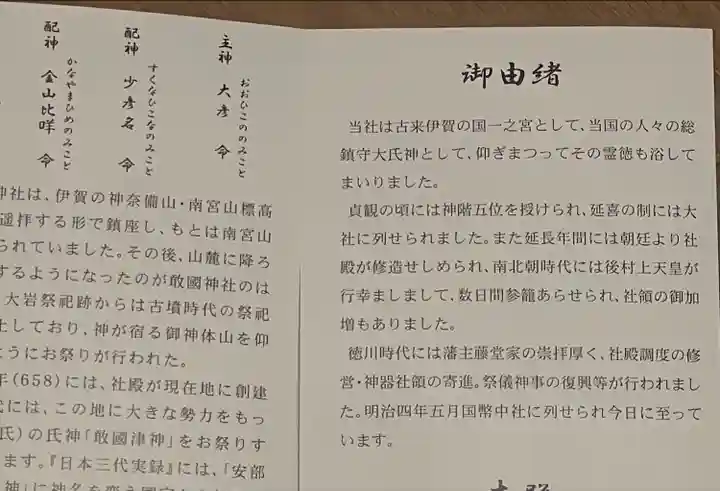 主神 大彦命
おおひこのみこと
配神 少彦名命
すくなひこなのみこと
配神 金山比咩命
かなやまひめのみこと
神社は、伊賀の神奈備山・南宮山標高
遥拝する形で鎮座し、もとは南宮山
られていました。その後、山麓に降ろ
するようになったのが敢國神社のは
大岩祭祀跡からは古墳時代の祭祀
土しており、神が宿る御神体山を仰
ようにお祭りが行われた。
年(658)には、社殿が現在地に創建
代には、この地に大きな勢力をもっ
氏)の氏神「敢國津神」をお祭りす
ます。『日本三代実録』には、「安部
御由緒
当社は古来伊賀の国一之宮として、当国の人々の総
鎮守大氏神として、仰ぎまつってその霊徳も浴して
まいりました。
貞観の頃には神階五位を授けられ、延喜の制には大
社に列せられました。また延長年間には朝廷より社
殿が修造せしめられ、南北朝時代には後村上天皇が
行幸ましまして、数日間参籠あらせられ、社領の御加
増もありました。
徳川時代には藩主藤堂家の崇拝厚く、社殿調度の修
営・神器社領の寄進。祭儀神事の復興等が行われまし
た。明治四年五月国幣中社に列せられ今日に至って
います。